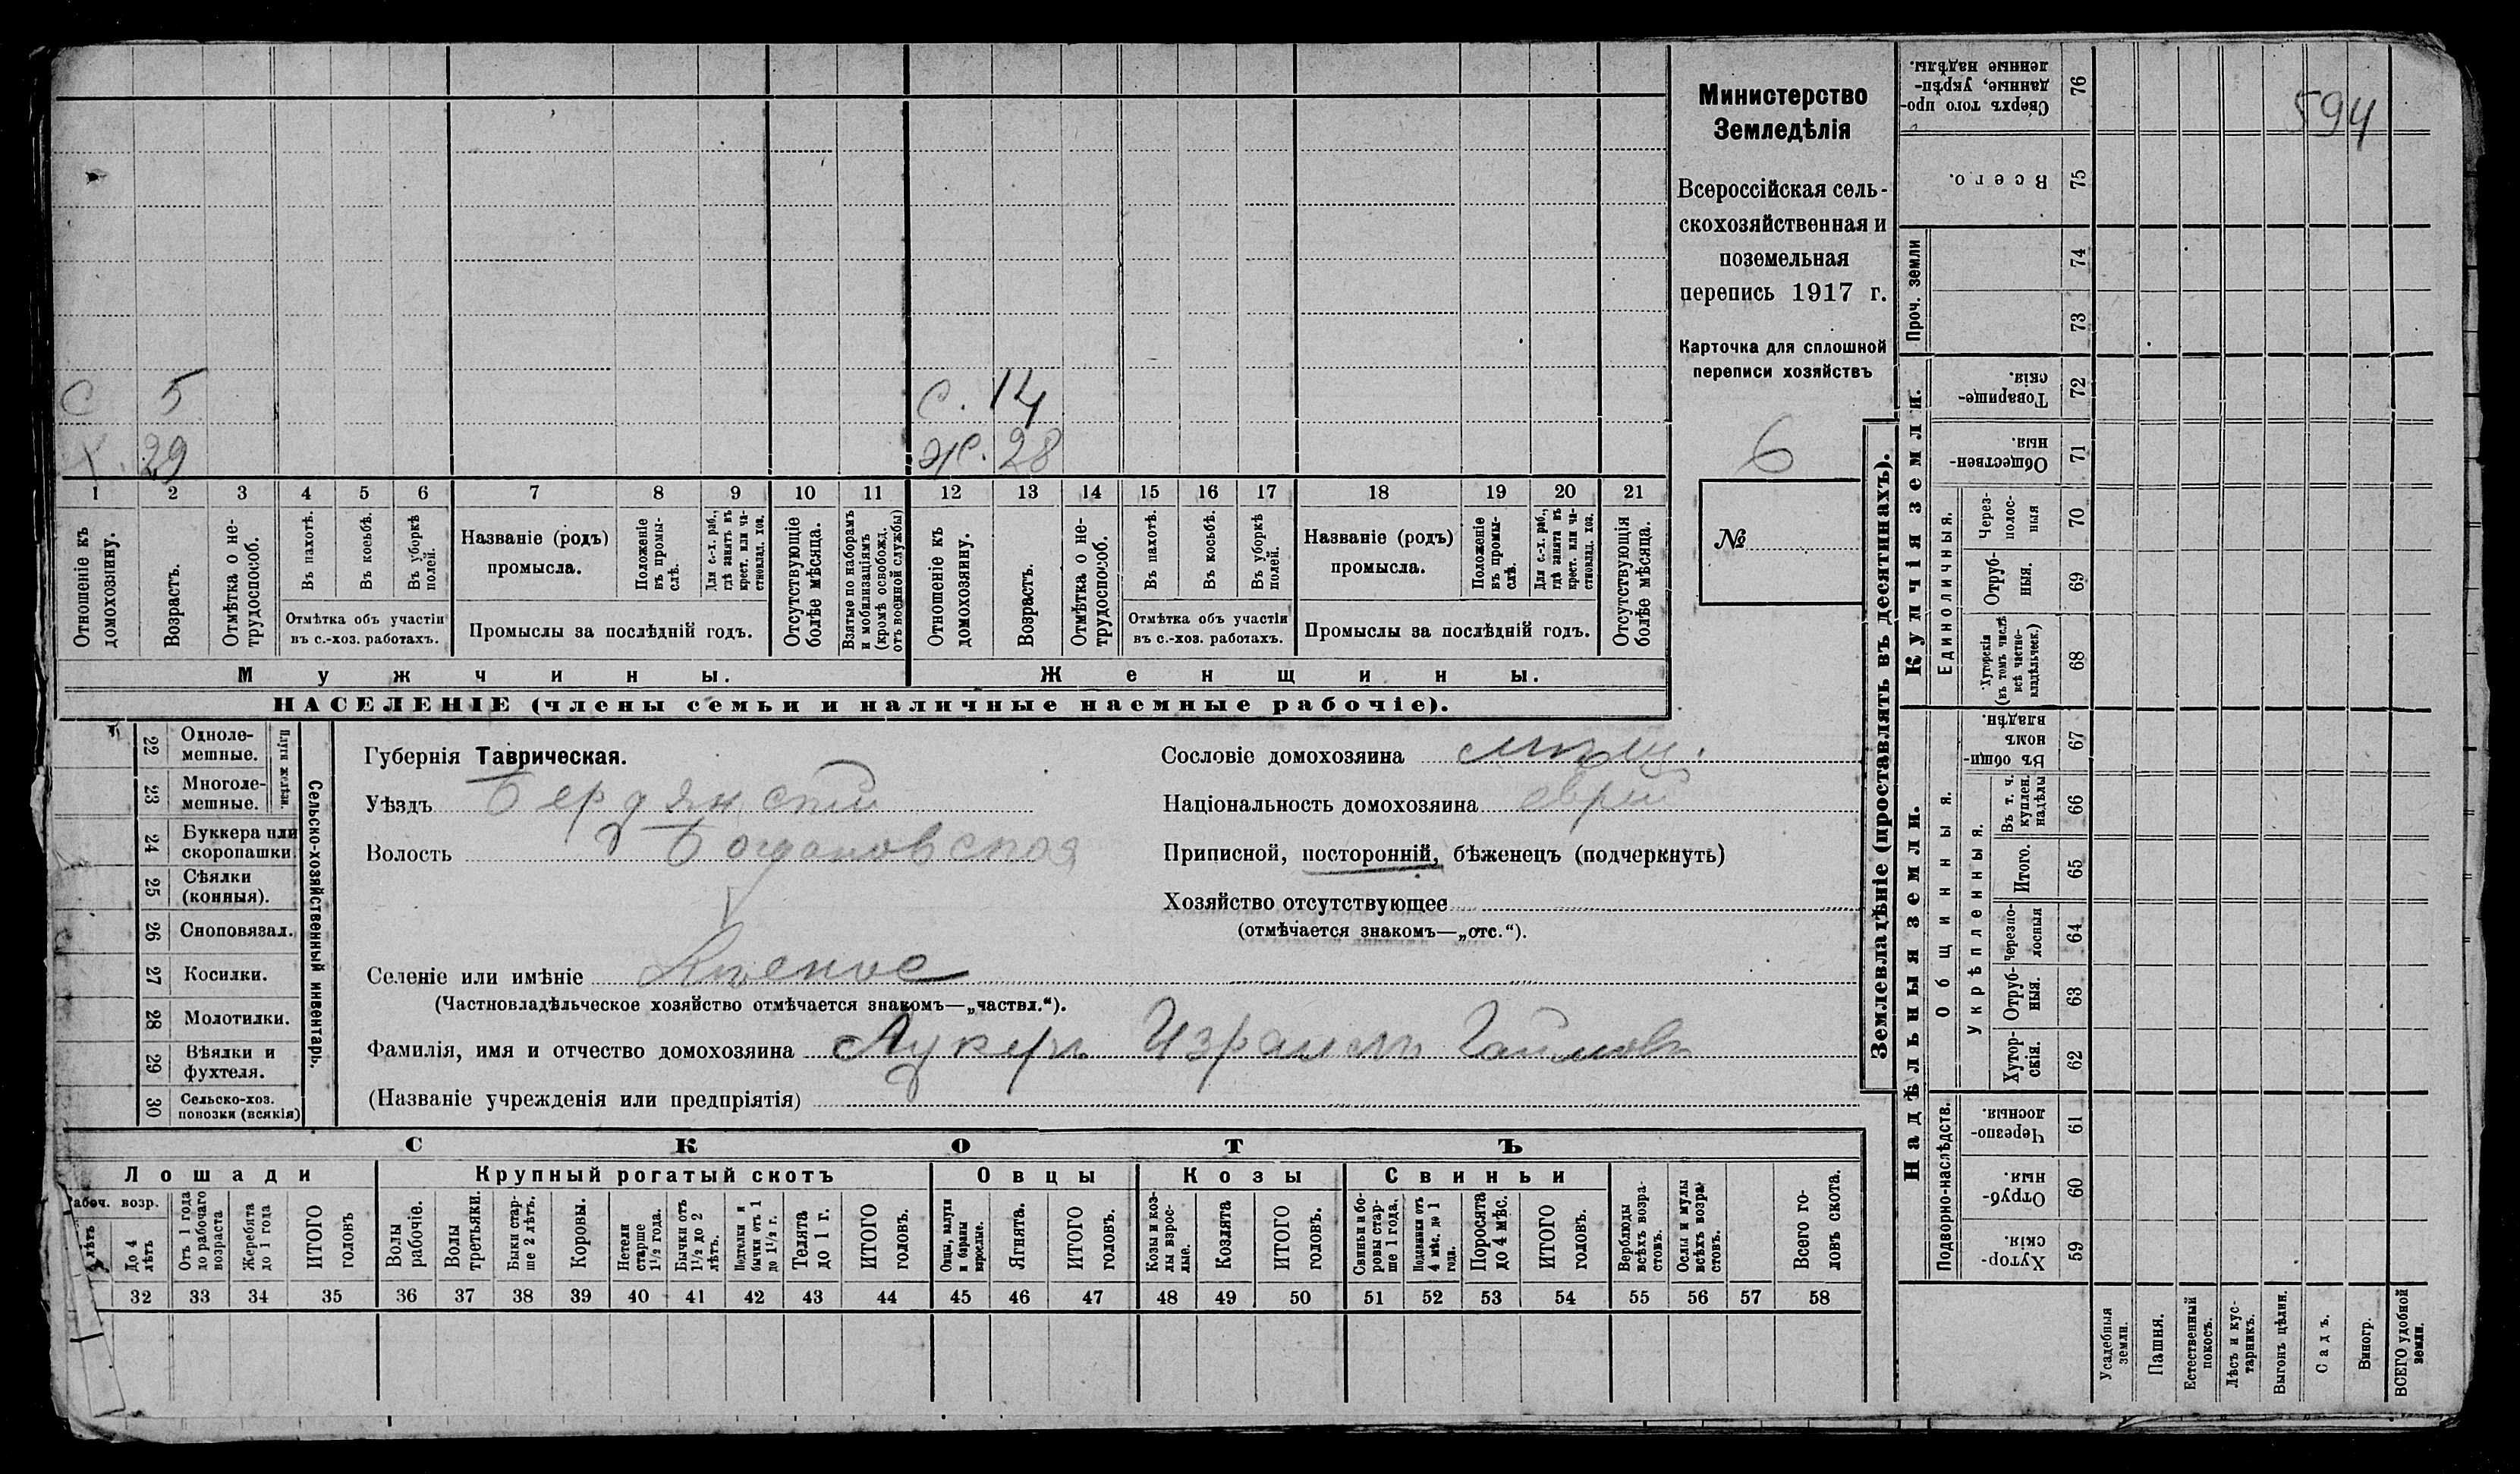 594
Министерство
Земледѣлія
Всероссійская сель-
скохозяйственная и
поземельная
перепись 1917 г.
Карточка для сплошной
переписи хозяйствъ
6
№
С 5
Х. 29
С. 14
Ж. 28
1 2 3 4 5 6 7 8 9 10 11 12 13 14 15 16 17 18 19 20 21
Отношеніе къ домохозяину.
Возрастъ.
Отмѣтка о не-трудоспособ.
Въ пахотѣ.
Въ косьбѣ.
Въ уборкѣ полей.
Отмѣтка объ участіи
въ с.-хоз. работахъ.
Названіе (родъ)
промысла.
Положеніе въ промы-слѣ.
Для с.-х. раб., гдѣ занятъ въ крест. или ча-стновлад. хоз.
Промыслы за послѣдній годъ.
Отсутствующіе болѣе мѣсяца.
Взятые по наборамъ и мобилизаціямъ (кромѣ освобожд. отъ военной службы)
Отношеніе къ домохозяину.
Возрастъ.
Отмѣтка о не-трудоспособ.
Въ пахотѣ.
Въ косьбѣ.
Въ уборкѣ полей.
Отмѣтка объ участіи
въ с.-хоз. работахъ.
Названіе (родъ)
промысла.
Положеніе въ промы-слѣ.
Для с.-х. раб., гдѣ занята въ крест. или ча-стновлад. хоз.
Промыслы за послѣдній годъ.
Отсутствующія болѣе мѣсяца.
Мужчины.
Женщины.
НАСЕЛЕНІЕ (члены семьи и наличные наемные рабочіе).
Сельско-хозяйственный инвентарь.
Плуги желѣзн.
22 Одноле-мешные.
23 Многоле-мешные.
24 Буккера или скоропашки.
25 Сѣялки (конныя).
26 Сноповязал.
27 Косилки.
28 Молотилки.
29 Вѣялки и фухтеля.
30 Сельско-хоз. повозки (всякія)
Губернія Таврическая.
Уѣздъ Бердянскій
Волость Богдановская
Селеніе или имѣніе
(Частновладѣльческое хозяйство отмѣчается знакомъ—„частвл.“).
Фамилія, имя и отчество домохозяина Цукеръ Израиль Хаимовъ
(Названіе учрежденія или предпріятія)
Сословіе домохозяина мѣщ.
Національность домохозяина еврей
Приписной, посторонній, бѣженецъ (подчеркнуть)
Хозяйство отсутствующее
(отмѣчается знакомъ—„отс.“).
СКОТЪ
Лошади
Крупный рогатый скотъ
Овцы
Козы
Свиньи
Рабоч. возр.
До 4 лѣтъ
Отъ 1 года до рабочаго возраста
Жеребята до 1 года
ИТОГО головъ
Волы рабочіе.
Волы третьяки.
Быки стар-ше 2 лѣтъ.
Коровы.
Нетели старше 1½ года.
Бычки отъ 1½ до 2 лѣтъ.
Нетелки и бычки отъ 1 до 1½ г.
Телята до 1 г.
ИТОГО головъ.
Овцы, валухи и бараны взрослые.
Ягнята.
ИТОГО головъ.
Козы и коз-лы взрос-лые.
Козлята
ИТОГО головъ.
Свиньи и бо-ровы стар-ше 1 года.
Подсвинки отъ 4 мѣс. до 1 года.
Поросята до 4 мѣс.
ИТОГО головъ.
Верблюды всѣхъ возра-стовъ.
Ослы и мулы всѣхъ возра-стовъ.
Всего го-ловъ скота.
32 33 34 35 36 37 38 39 40 41 42 43 44 45 46 47 48 49 50 51 52 53 54 55 56 57 58
Землевладѣніе (проставлять въ десятинахъ).
Купчія земли.
Надѣльныя земли.
Сверхъ того про-данные, укрѣп-ленные надѣлы. 76
Всего. 75
Проч. земли
74
73
Товарище-скія. 72
Обществен-ныя. 71
Единоличныя.
Через-полос-ныя 70
Отруб-ныя. 69
Хуторскія (въ томъ числѣ всѣ частно-владѣльческ.) 68
Общинныя.
Въ общин-номъ владѣн. 67
Укрѣпленныя.
Въ т. ч. куплен. надѣлы 66
Итого. 65
Черезпо-лосныя 64
Отруб-ныя. 63
Хутор-скія. 62
Подворно-наслѣдств.
Черезпо-лосныя. 61
Отруб-ныя. 60
Хутор-скія. 59
Усадебныя земли.
Пашня.
Естественный покосъ.
Лѣсъ и кус-тарникъ.
Выгонъ цѣлин.
Садъ.
Виногр.
ВСЕГО удобной земли.